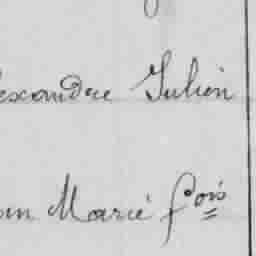 exandre Julien
en Marié fois